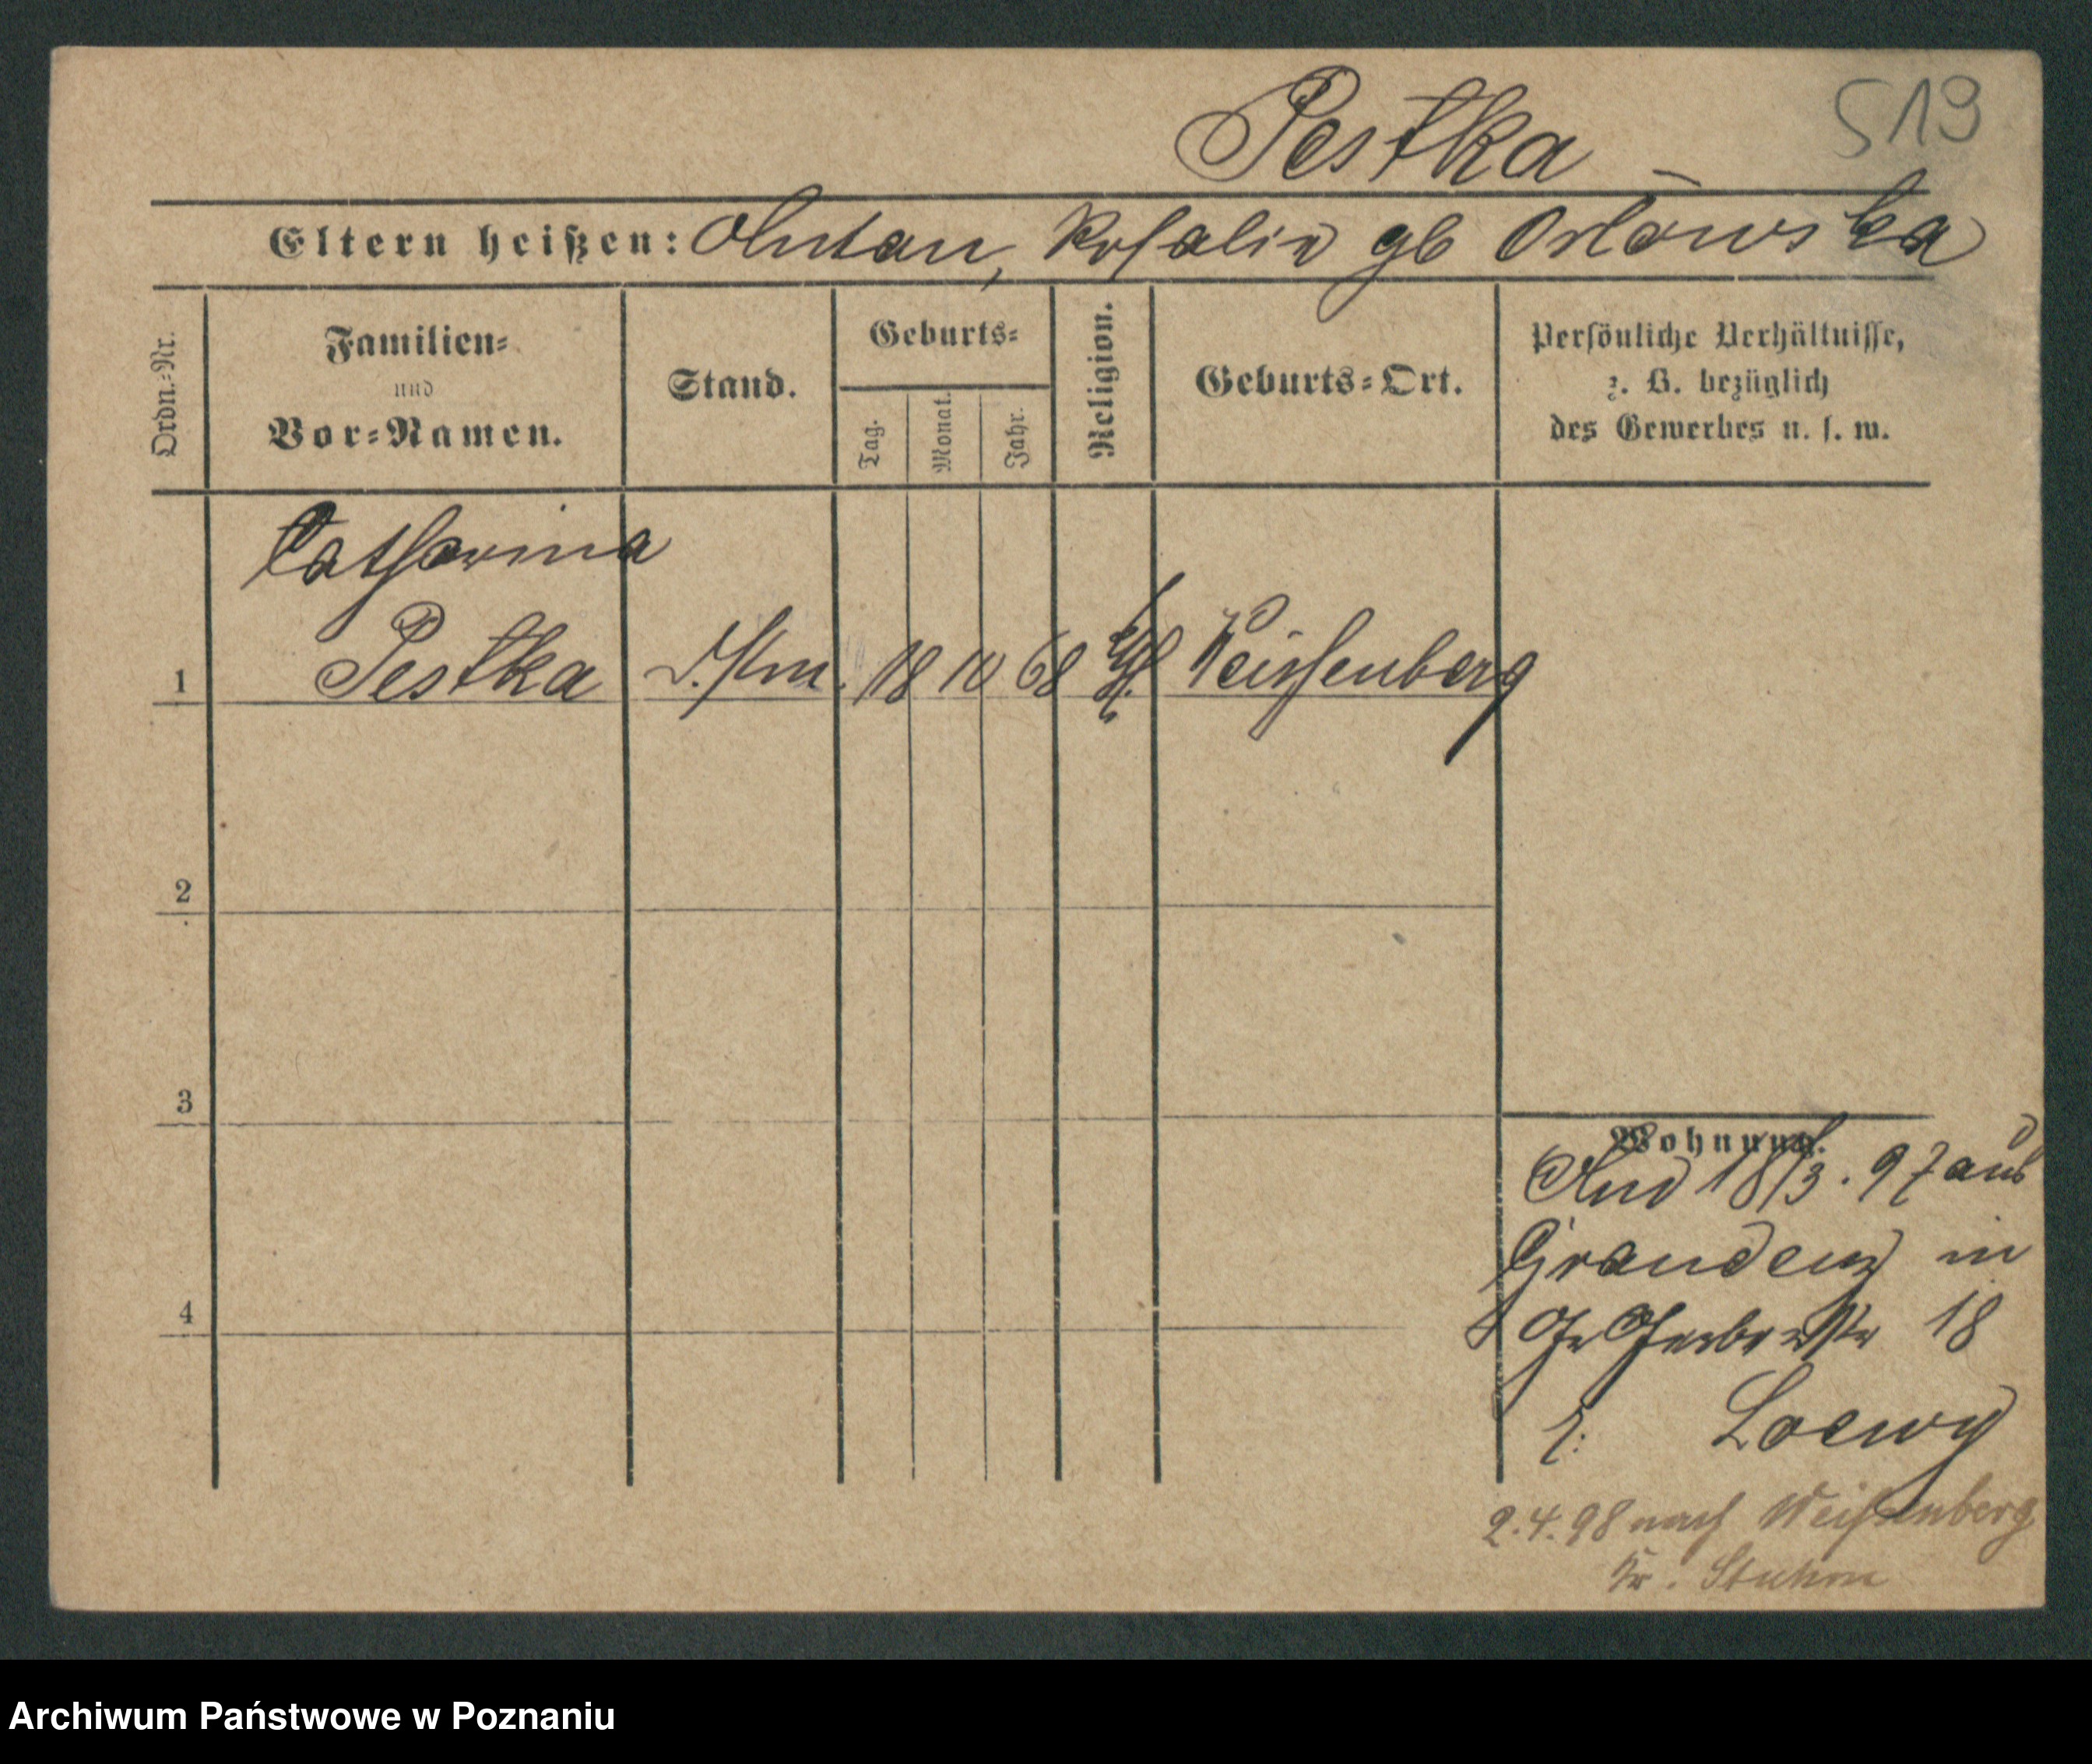 519
Pestka
Eltern heißen: Anton, Rosalie gb Orlowska
Ordn.=Nr.
Familien=
und
Vor=Namen.
Stand.
Geburts=
Tag.
Monat.
Jahr.
Religion.
Geburts=Ort.
Persönliche Verhältnisse,
z. B. bezüglich
des Gewerbes u. s. w.
Catharina
1 Pestka 18 10 68 Weissenberg
2
3
4
Wohnung.
18/3. 97 aus
Graudenz in
Gr Gerberstr 18
b: Loewy
2.4.98 nach Weißenberg
Kr. Stuhm